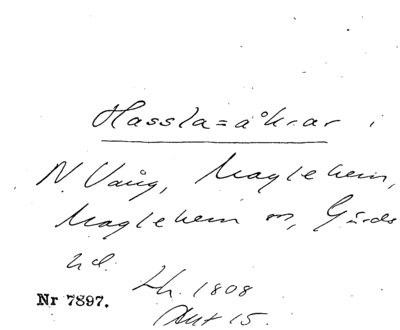 Hassla=åkrar i
N. Vång, Maglehem,
Maglehem sn, Gärds
hd.
Lh. 1808
Akt 15.
Nr 7897.